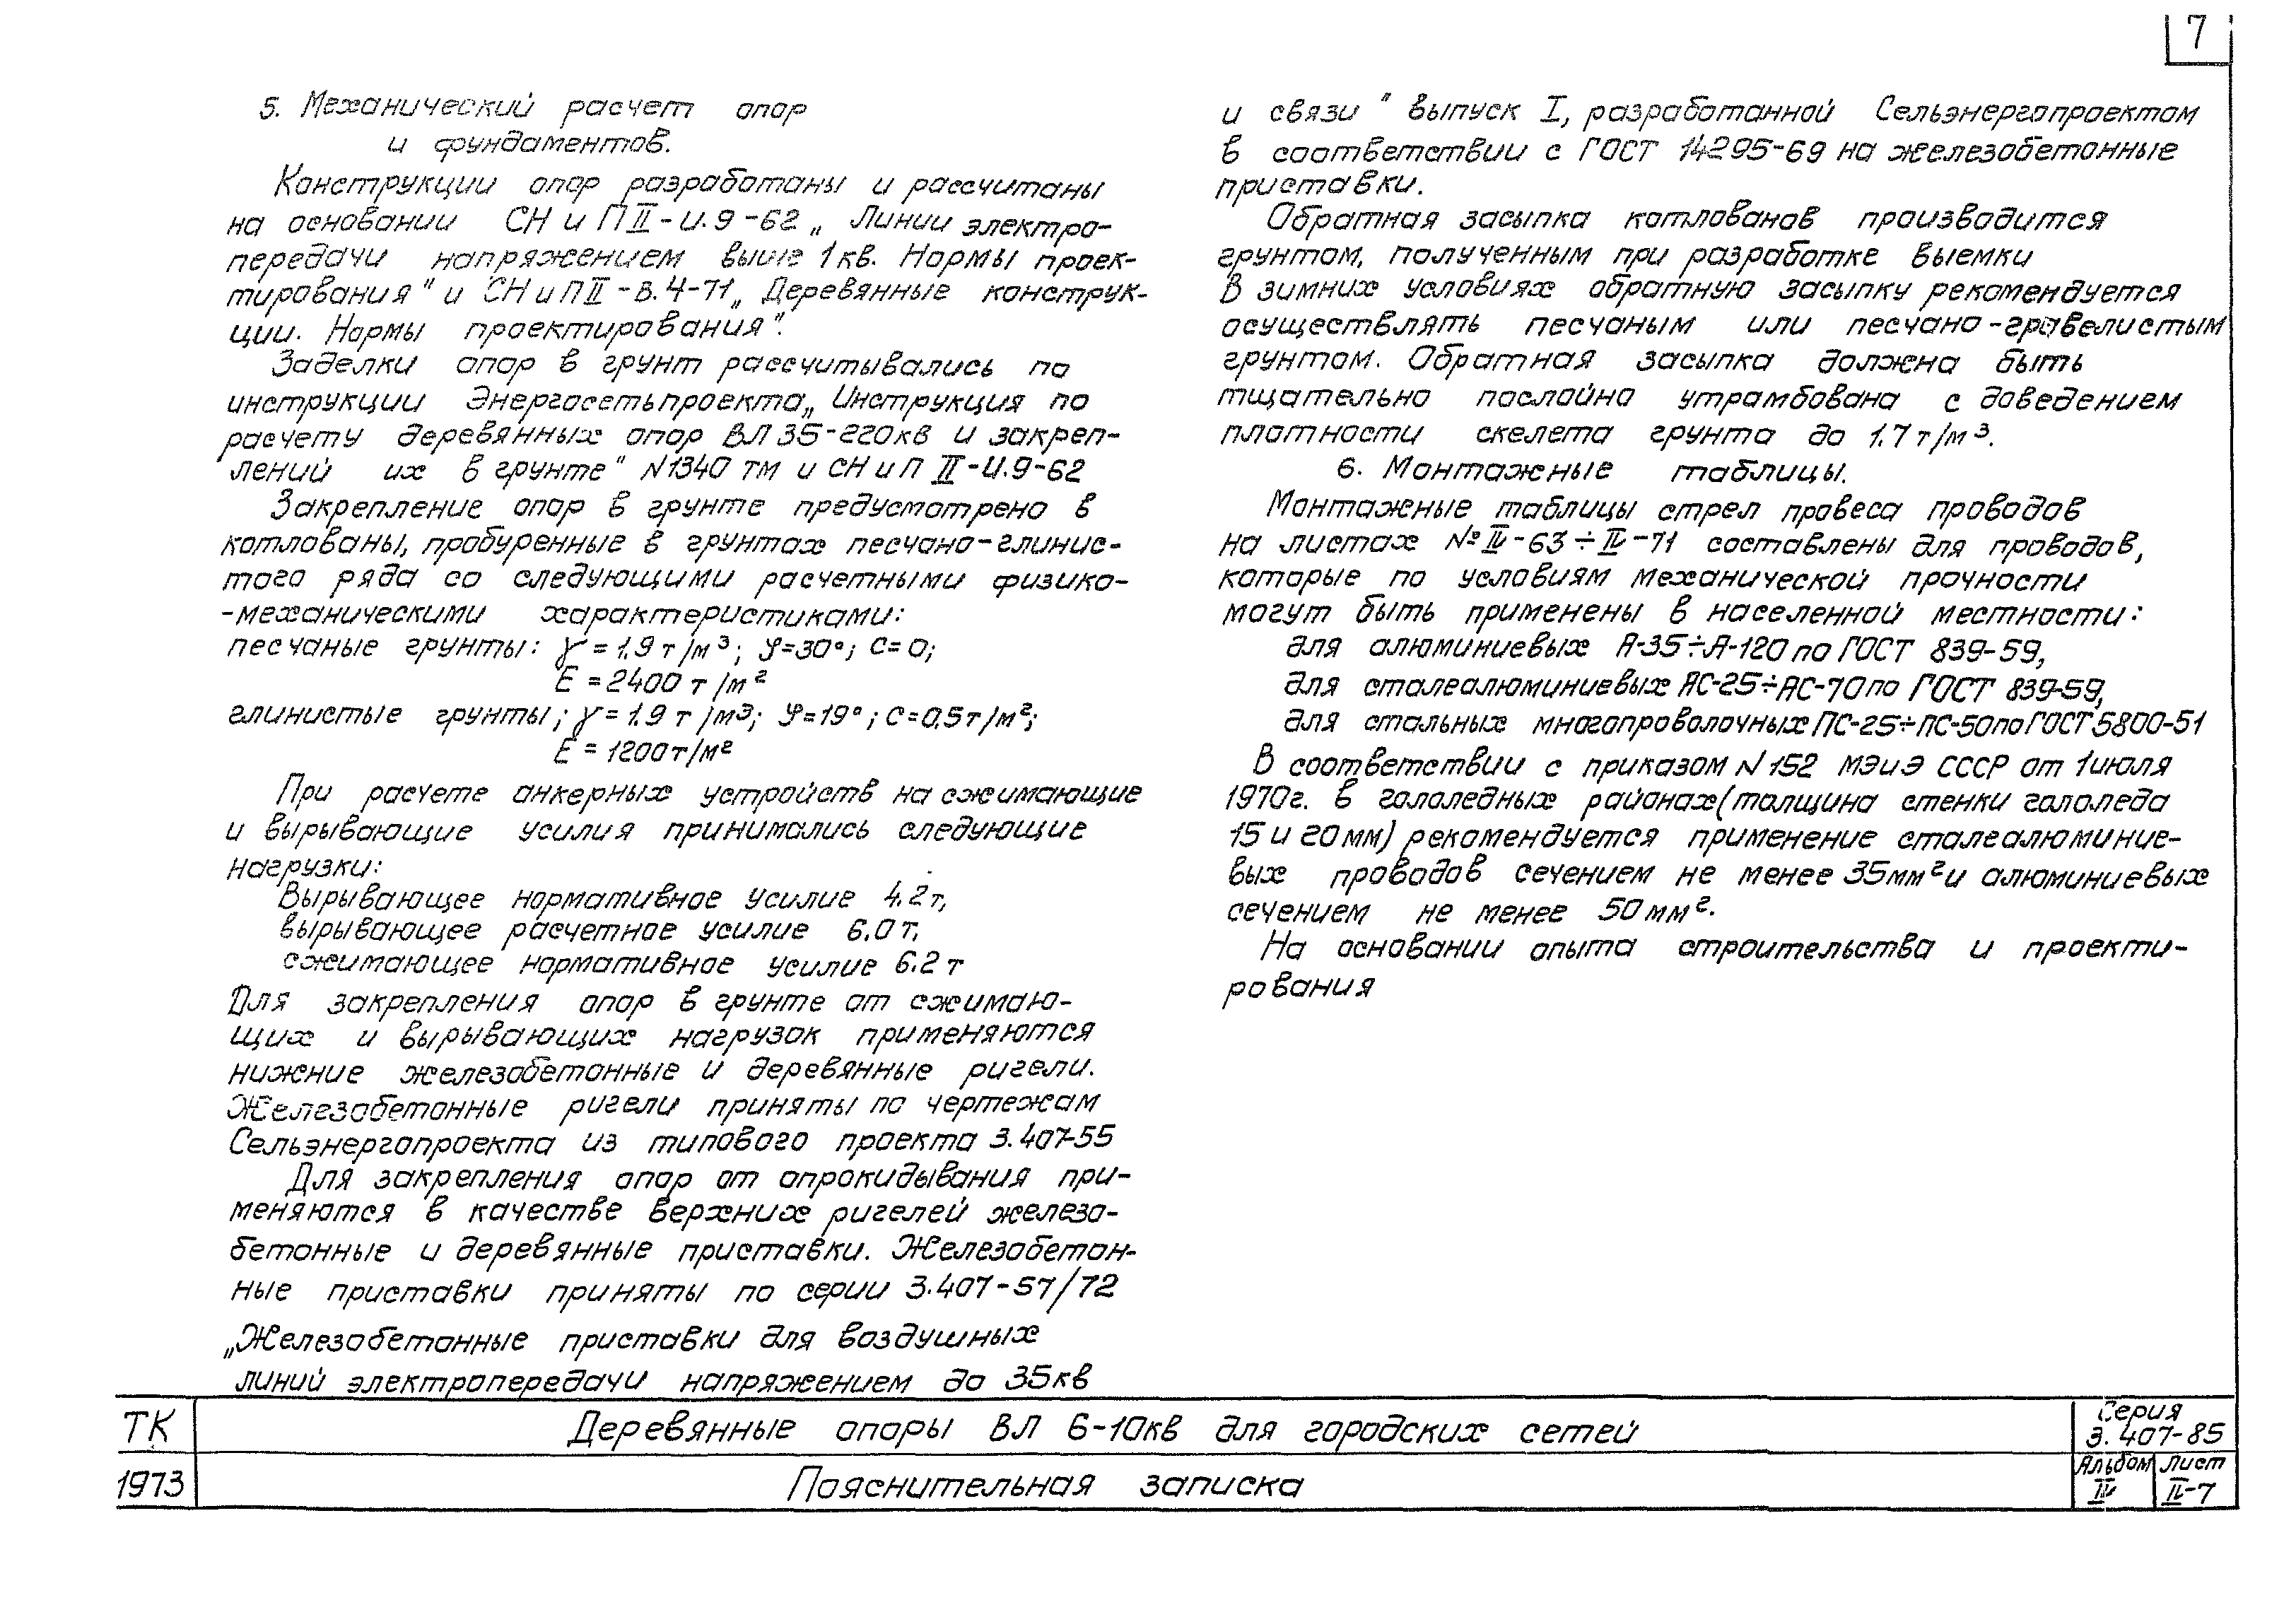 7
5. Механический расчет опор
и фундаментов.
Конструкции опор разработаны и рассчитаны
на основании СН и П II-И.9-62 „Линии электро-
передачи напряжением выше 1кв. Нормы проек-
тирования" и СН и П II-В.4-71 „Деревянные конструк-
ции. Нормы проектирования".
Заделки опор в грунт рассчитывались по
инструкции Энергосетьпроекта „Инструкция по
расчету деревянных опор ВЛ 35-220кв и закреп-
лений их в грунте" N1340 тм и СН и П II-И.9-62
Закрепление опор в грунте предусмотрено в
котлованы, пробуренные в грунтах песчано-глинис-
того ряда со следующими расчетными физико-
-механическими характеристиками:
песчаные грунты: γ = 1.9 т/м³; φ=30°; С=0;
Е = 2400 т/м²
глинистые грунты; γ = 1.9 т/м³; φ=19°; С=0.5т/м²;
Е = 1200т/м²
При расчете анкерных устройств на сжимающие
и вырывающие усилия принимались следующие
нагрузки:
Вырывающее нормативное усилие 4.2т,
вырывающее расчетное усилие 6.0т,
сжимающее нормативное усилие 6.2т
Для закрепления опор в грунте от сжимаю-
щих и вырывающих нагрузок применяются
нижние железобетонные и деревянные ригели.
Железобетонные ригели приняты по чертежам
Сельэнергопроекта из типового проекта 3.407-55
Для закрепления опор от опрокидывания при-
меняются в качестве верхних ригелей железо-
бетонные и деревянные приставки. Железобетон-
ные приставки приняты по серии 3.407-57/72
„Железобетонные приставки для воздушных
линий электропередачи напряжением до 35кв
и связи" выпуск I, разработанной Сельэнергопроектом
в соответствии с ГОСТ 14295-69 на железобетонные
приставки.
Обратная засыпка котлованов производится
грунтом, полученным при разработке выемки
В зимних условиях обратную засыпку рекомендуется
осуществлять песчаным или песчано-гравелистым
грунтом. Обратная засыпка должна быть
тщательно послойно утрамбована с доведением
плотности скелета грунта до 1.7т/м³.
6. Монтажные таблицы.
Монтажные таблицы стрел провеса проводов
на листах № IV-63÷IV-71 составлены для проводов,
которые по условиям механической прочности
могут быть применены в населенной местности:
для алюминиевых А-35÷А-120 по ГОСТ 839-59,
для сталеалюминиевых АС-25÷АС-70 по ГОСТ 839-59,
для стальных многопроволочных ПС-25÷ПС-50 по ГОСТ 5800-51
В соответствии с приказом N 152 МЭиЭ СССР от 1июля
1970г. в гололедных районах (толщина стенки гололеда
15 и 20мм) рекомендуется применение сталеалюминие-
вых проводов сечением не менее 35мм² и алюминиевых
сечением не менее 50мм².
На основании опыта строительства и проекти-
рования
ТК
1973
Деревянные опоры ВЛ 6-10кв для городских сетей
Пояснительная записка
Серия
3.407-85
Альбом Лист
IV IV-7